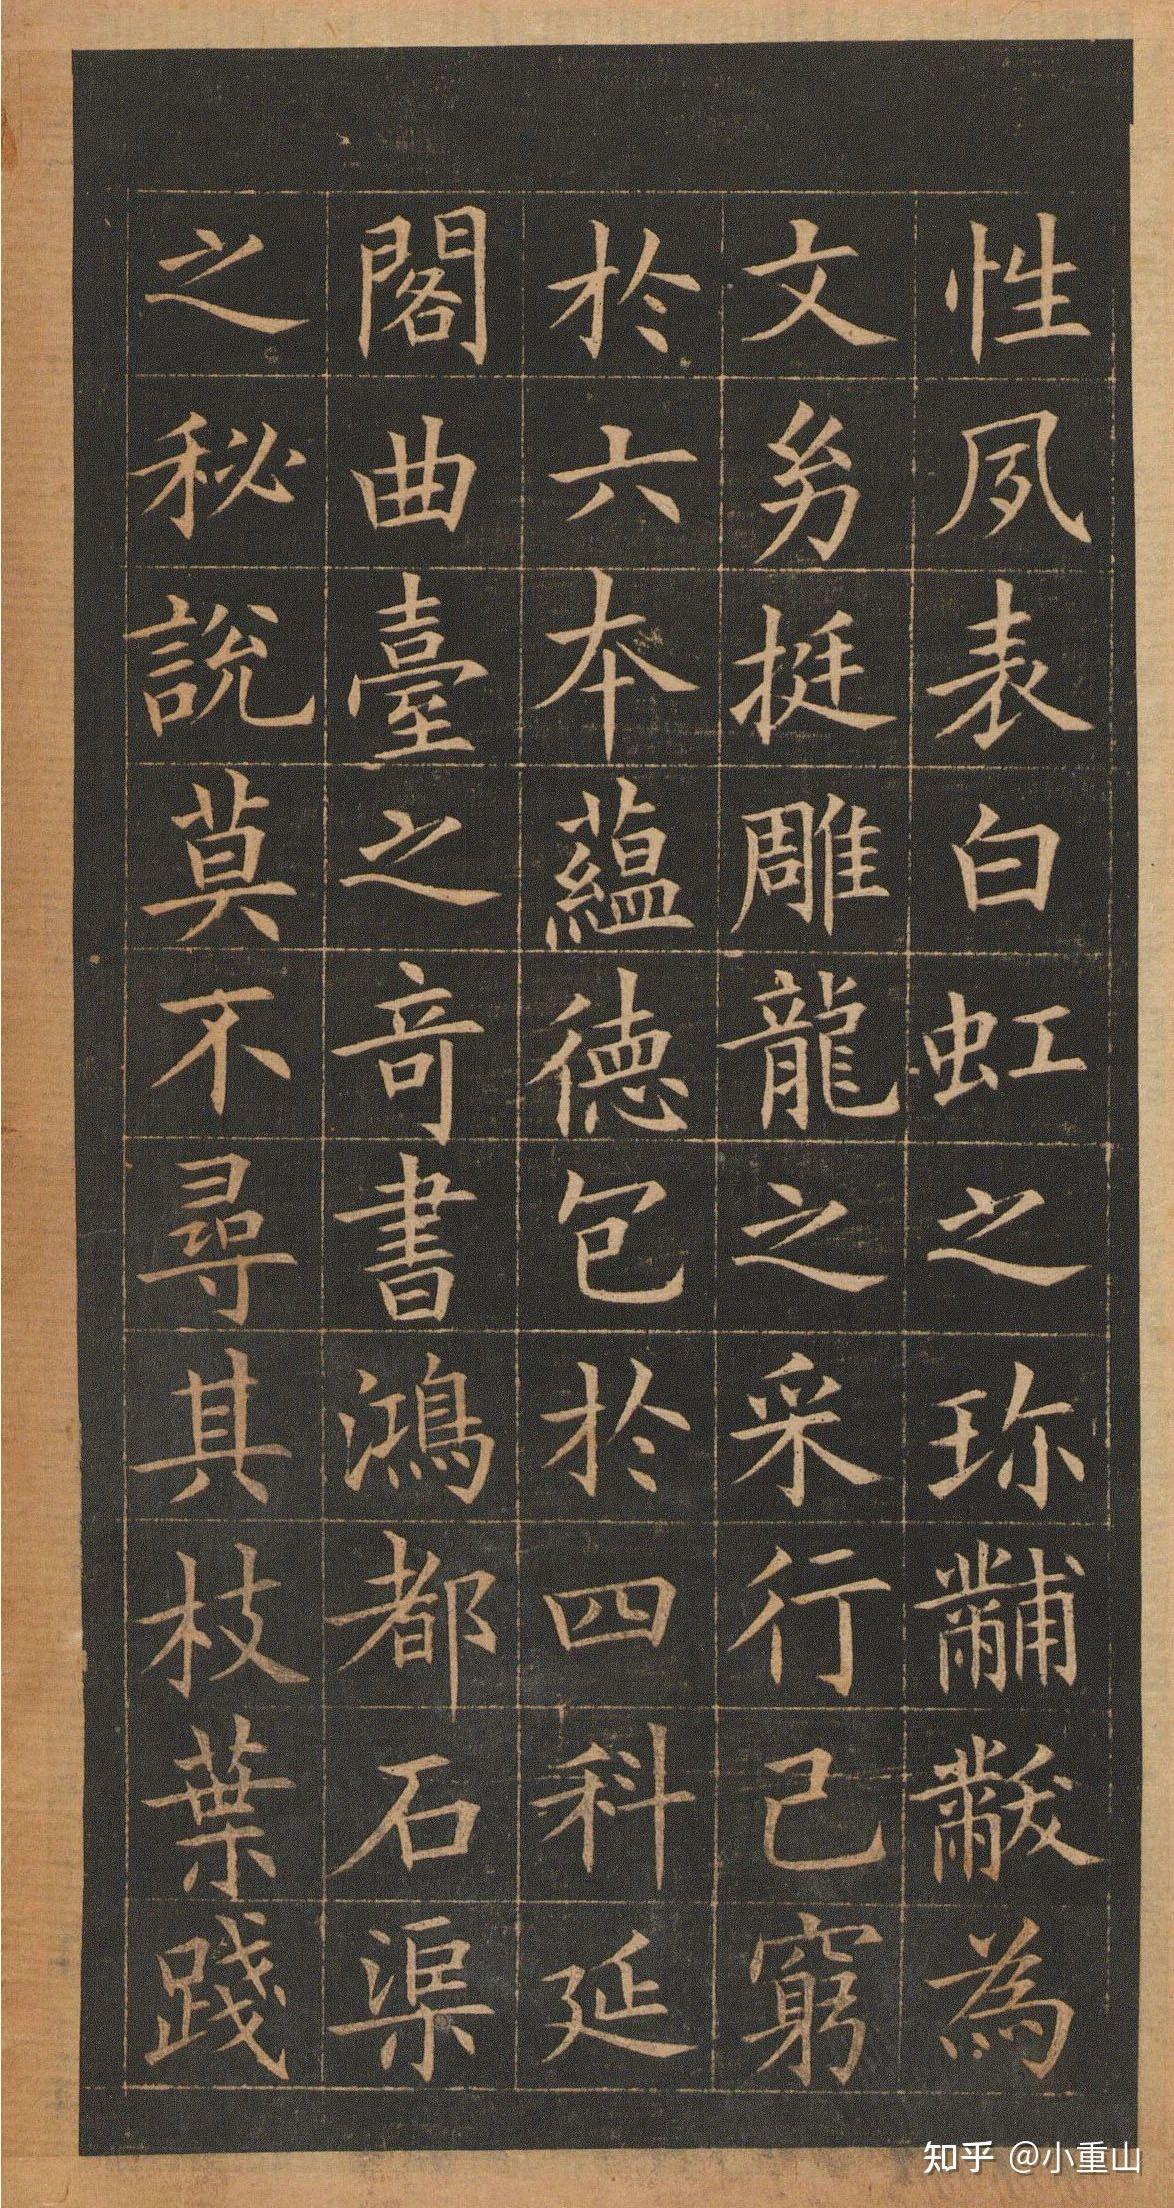 性夙表白虹之珎黼黻為
文㓜挺雕龍之采行己窮
於六本蘊德包於四科延
閣曲臺之竒書鴻都石渠
之秘說莫不尋其枝葉踐
知乎 @小重山